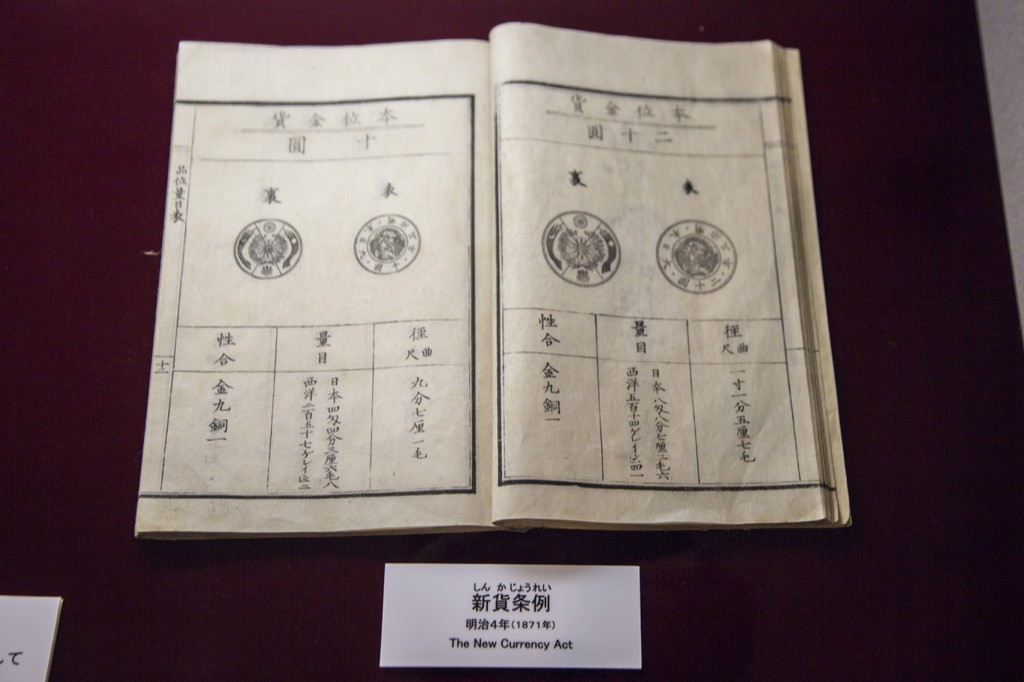 本位金貨
二十圓
表
裏
徑
曲尺
一寸一分五厘七毛
量目
日本八匁八分七厘二毛六
西洋五百十四ゲレイン四一
性合
金九銅一
本位金貨
十圓
表
裏
徑
曲尺
九分七厘一毛
量目
日本四匁四分三厘六毛八
西洋二百五十七ゲレイン二
性合
金九銅一
品位量目表
しんかじょうれい
新貨条例
明治4年(1871年)
The New Currency Act
して